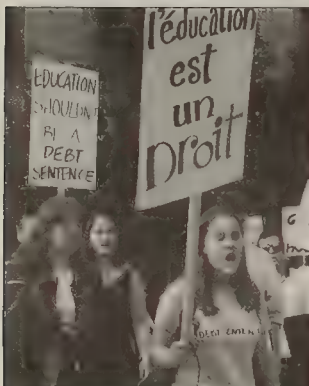 EDUCATION
SHOULDN'T
BE A
DEBT
SENTENCE
l'éducation
est
un
Droit
DEBT